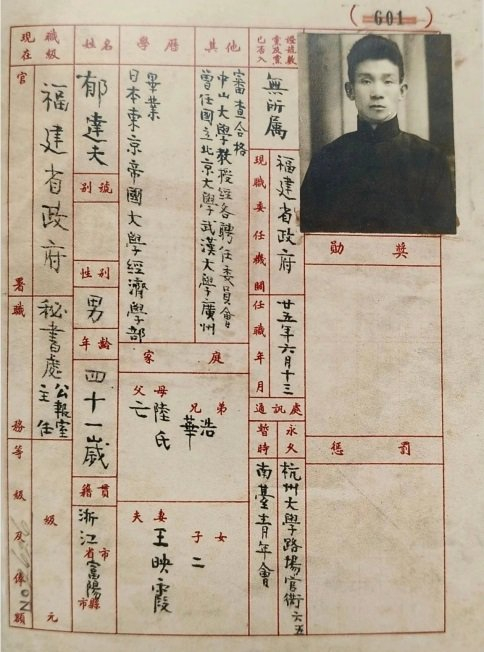 ( 601 )
現在職級
官署
福建省政府
職務
秘書處
公報室
主任
等級及俸額
級
元
姓名
郁達夫
別號
性別
男
年齡
四十一歲
籍貫
浙江省市
富陽市縣
學歷
日本東京帝國大學經濟學部
畢業
其他
曾任國立北京大學武漢大學廣州
中山大學教授經各聘任委員會
審查合格
家庭
父母
亡
陸氏
兄弟
華
浩
夫妻
王映霞
子女
二
已否入黨及黨證號數
無所屬
現職委任機關
福建省政府
任職年月
廿五年六月十三
通訊處
暫時
南臺青年會
永久
杭州大學路場官衖六五
勛獎
懲罰